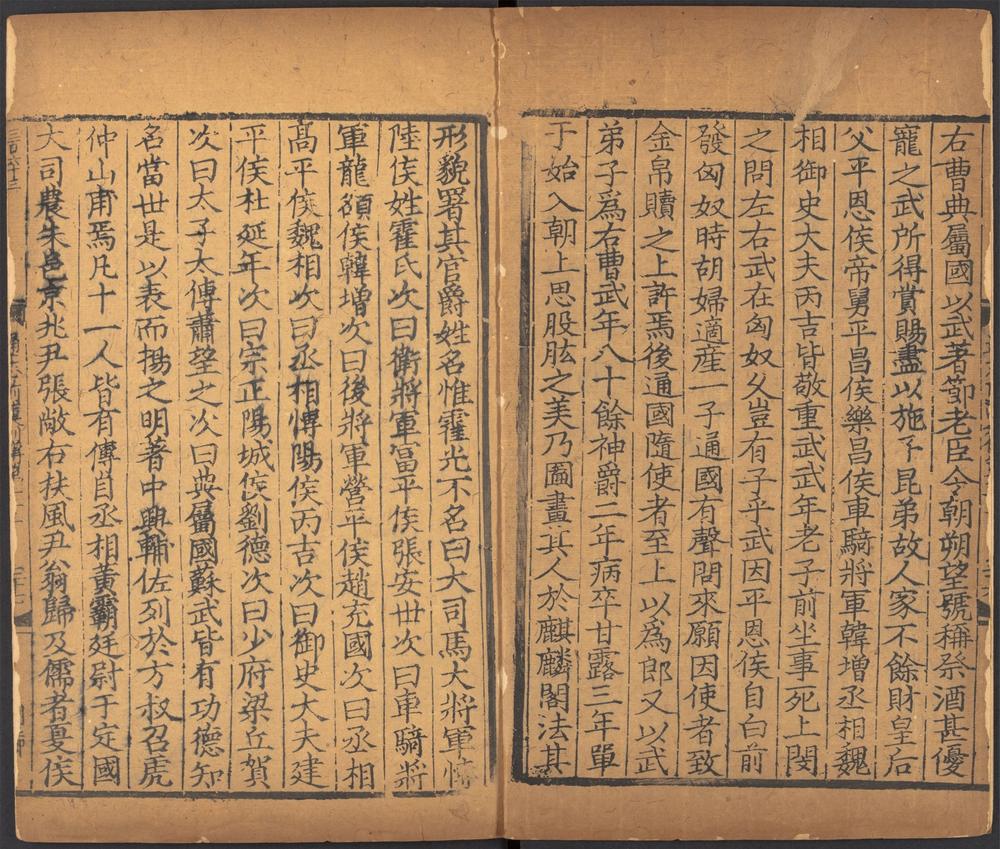 右曹典屬國以武著節老臣令朝朔望號稱祭酒甚優
寵之武所得賞賜盡以施予昆弟故人家不餘財皇后
父平恩侯帝舅平昌侯樂昌侯車騎將軍韓增丞相魏
相御史大夫丙吉皆敬重武武年老子前坐事死上閔
之問左右武在匈奴久豈有子乎武因平恩侯自白前
發匈奴時胡婦適產一子通國有聲問來願因使者致
金帛贖之上許焉後通國隨使者至上以為郎又以武
弟子為右曹武年八十餘神爵二年病卒甘露三年單
于始入朝上思股肱之美乃圖畫其人於麒麟閣法其
形貌署其官爵姓名惟霍光不名曰大司馬大將軍博
陸侯姓霍氏次曰衛將軍富平侯張安世次曰車騎將
軍龍頟侯韓增次曰後將軍營平侯趙充國次曰丞相
高平侯魏相次曰丞相博陽侯丙吉次曰御史大夫建
平侯杜延年次曰宗正陽城侯劉德次曰少府梁丘賀
次曰太子太傅蕭望之次曰典屬國蘇武皆有功德知
名當世是以表而揚之明著中興輔佐列於方叔召虎
仲山甫焉凡十一人皆有傳自丞相黃霸廷尉于定國
大司農朱邑京兆尹張敞右扶風尹翁歸及儒者夏侯